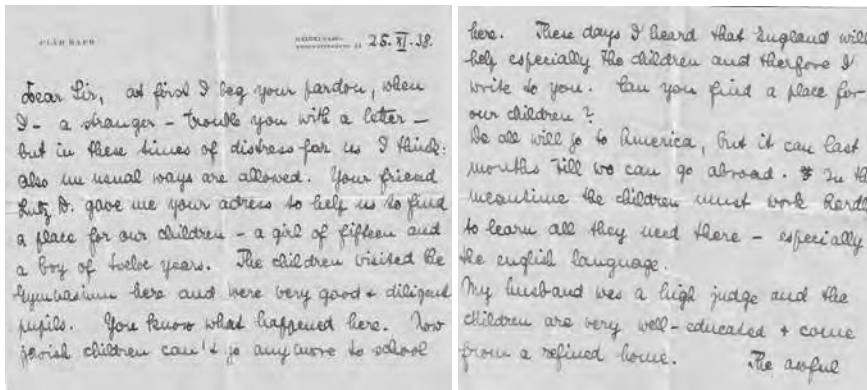 CLÄR BAER
25. XI. 38.
Dear Sir, at first I beg your pardon, when
I – a stranger – trouble you with a letter –
but in these times of distress for us I think:
also unusual ways are allowed. Your friend
Lutz D. gave me your adress to help us to find
a place for our children – a girl of fifteen and
a boy of twelve years. The children visited the
Gymnasium here and were very good + diligent
pupils. You know what happened here. Now
jewish children can't go any more to school
here. These days I heard that England will
help especially the children and therfore I
write to you. Can you find a place for
our children?
We all will go to America, but it can last
months till we can go abroad. In the
meantime the children must work hardly
to learn all they need there – especially
the english language.
My husband was a high judge and the
children are very well-educated + come
from a refined home. The awful